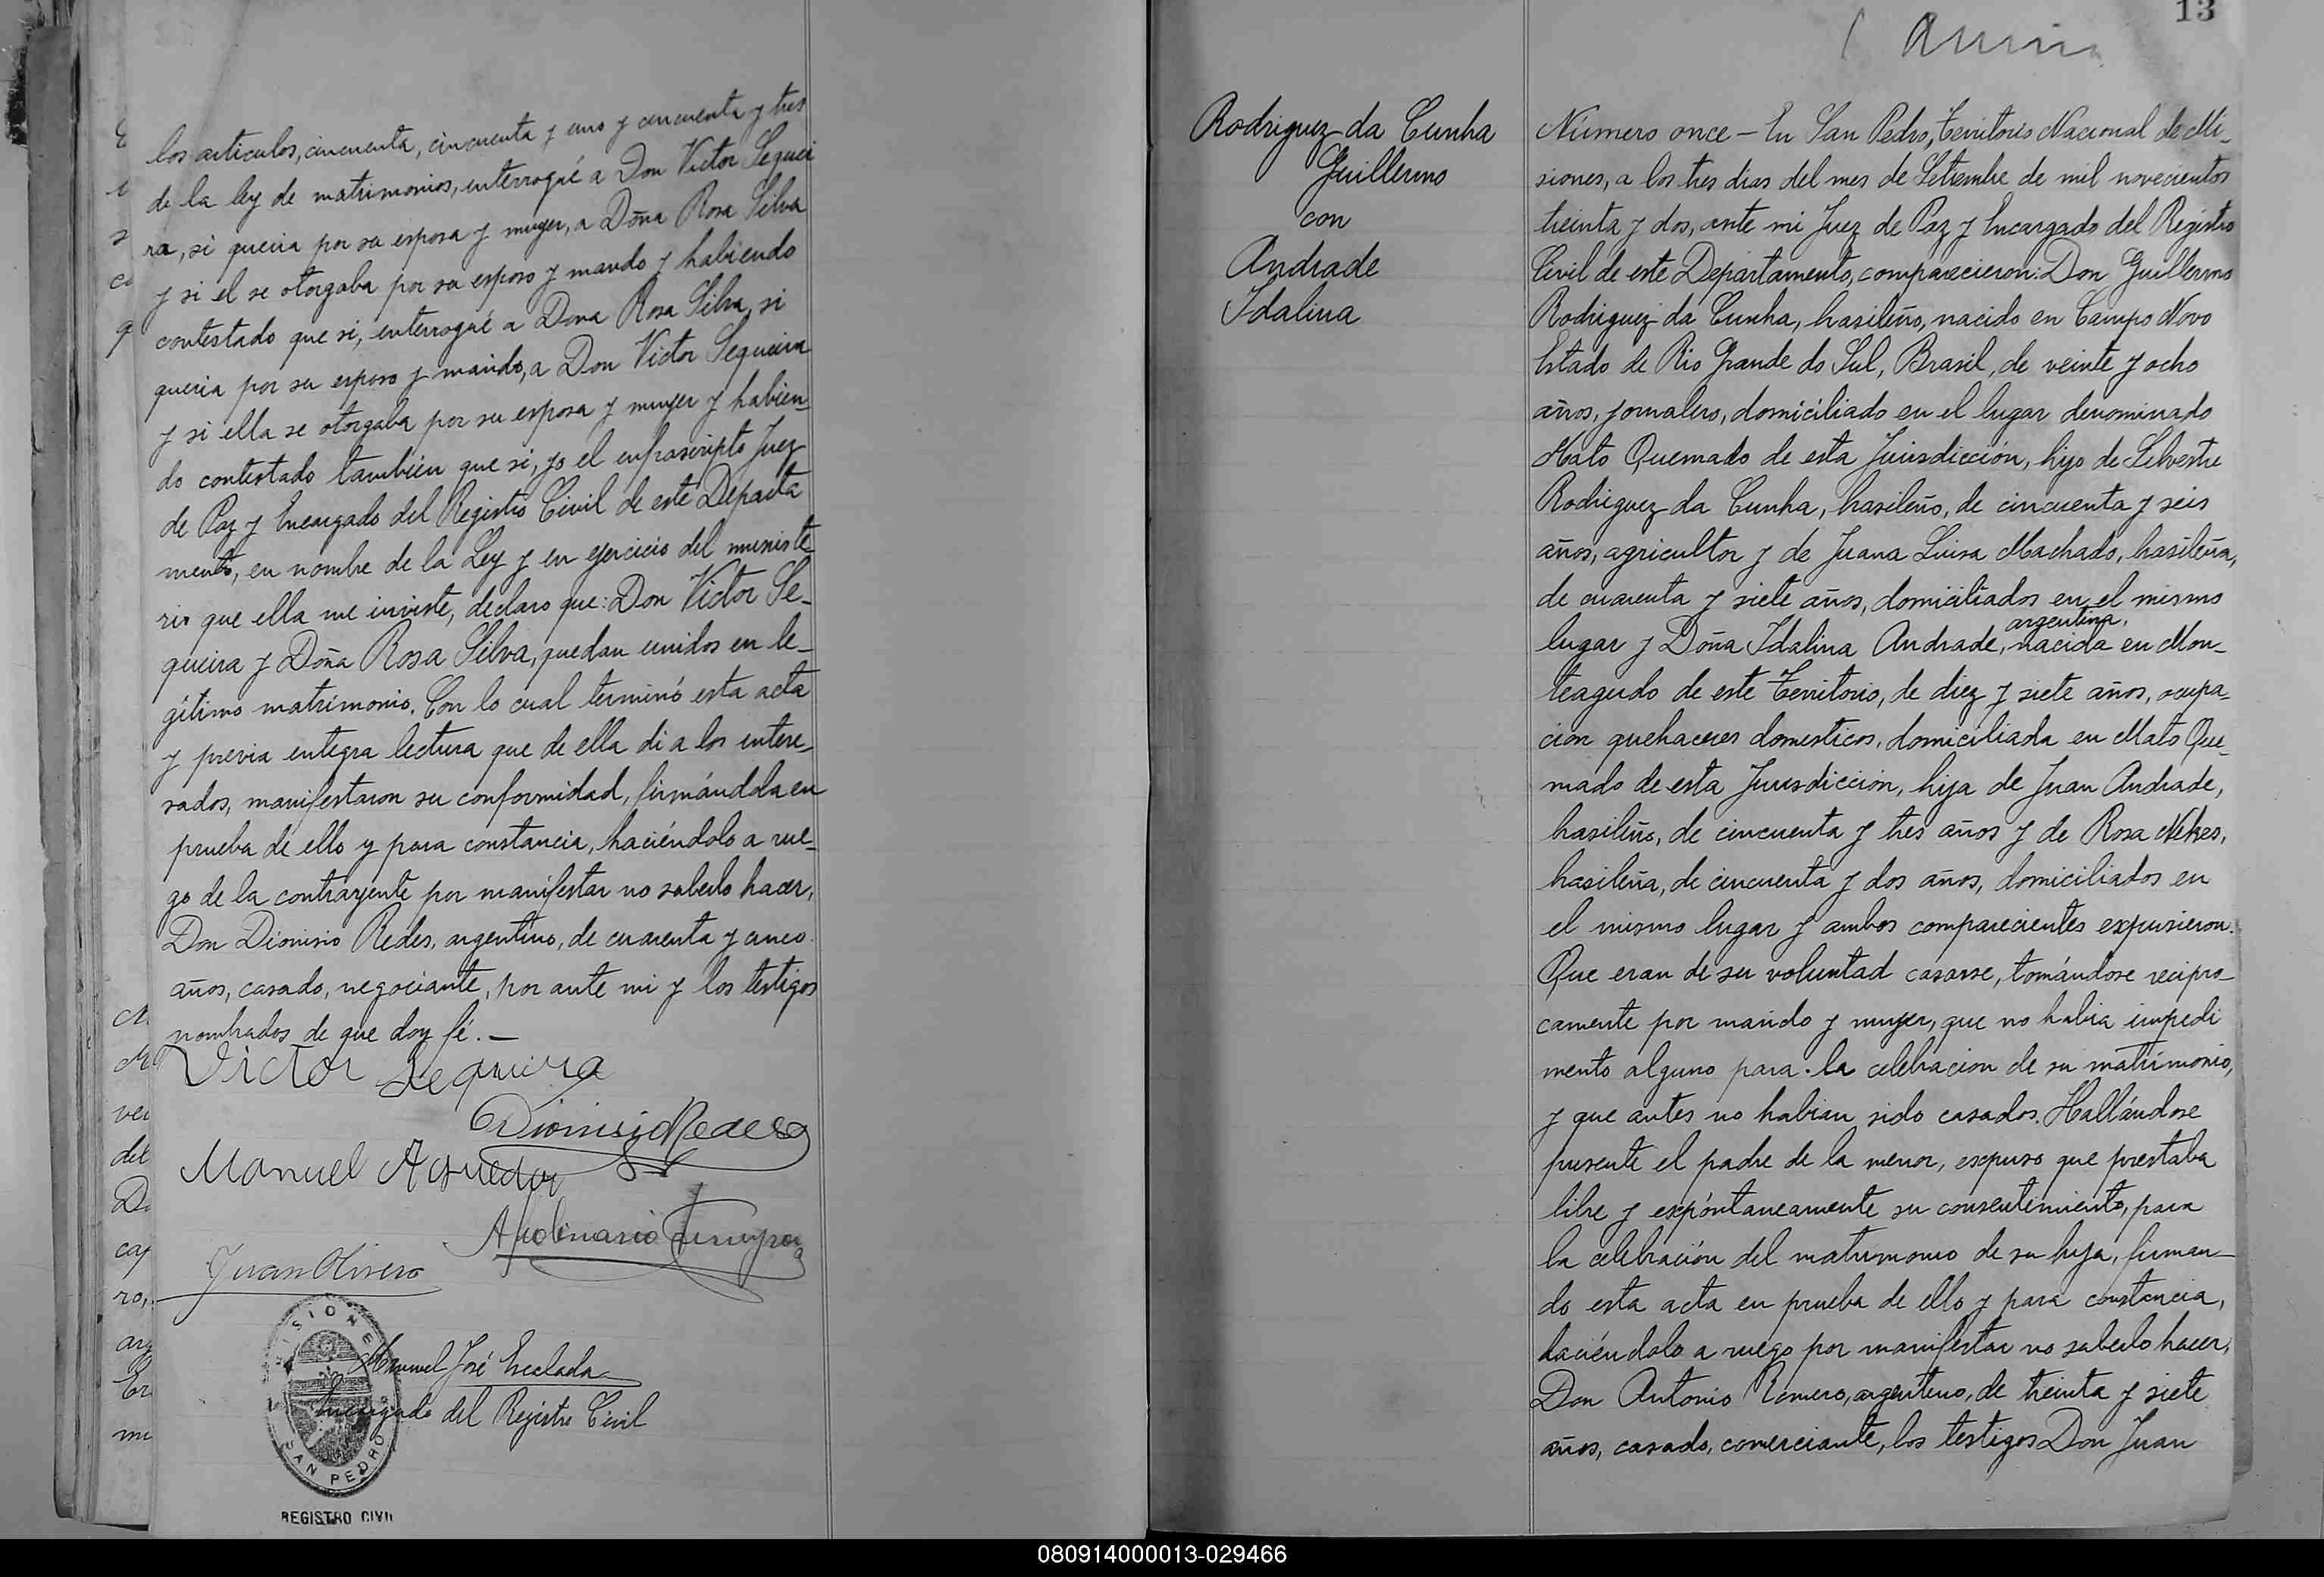 los articulos, cincuenta, cincuenta y uno y cincuenta y tres
de la ley de matrimonios, interrogué a Don Victor Sequei
ra, si queria por su esposa y muger, a Doña Rosa Silva
y si el se otorgaba por su esposo y marido y habiendo
contestado que si, interrogué a Dona Rosa Silva, si
queria por su esposo y marido, a Don Victor Sequeira
y si ella se otorgaba por su esposa y muger y habien-
do contestado tambien que si, yo el infrascripto Juez
de Paz y Encargado del Registro Civil de este Departa
mento, en nombre de la Ley y en ejercicio del ministe
rio que ella me inviste, declaro que: Don Victor Se-
queira y Doña Rosa Silva, quedan unidos en le-
gítimo matrimonio. Con lo cual terminó esta acta
y previa entegra lectura que de ella di a los intere-
sados, manifestaron su conformidad, firmándola en
prueba de ello y para constancia, haciéndolo a rue-
go de la contrayente por manifestar no saberlo hacer,
Don Dionisio Redes, argentino, de cuarenta y cinco
años, casado, negociante, por ante mi y los testigos
nombrados de que doy fé. —
Victor Sequeira
Dionisio Redes
Manuel
Apolinario
Juan Olivero
Manuel José
Encargado del Registro Civil
MISIONES
SAN PEDRO
REGISTRO CIVIL
13
Rodriguez da Cunha
Guillermo
con
Andrade
Idalina
Número once — En San Pedro, Territorio Nacional de Mi-
siones, a los tres dias del mes de Setiembre de mil novecientos
treinta y dos, ante mi Juez de Paz y Encargado del Registro
Civil de este Departamento, comparecieron: Don Guillermo
Rodriguez da Cunha, brasileño, nacido en Campo Novo
Estado de Rio Grande do Sul, Brasil, de veinte y ocho
años, jornalero, domiciliado en el lugar denominado
Mato Quemado de esta Jurisdicción, hijo de Silvestre
Rodriguez da Cunha, brasileño, de cincuenta y seis
años, agricultor y de Juana Luisa Machado, brasileña,
de cuarenta y siete años, domiciliados en el mismo
argentina,
lugar y Doña Idalina Andrade, nacida en Mon-
teagudo de este Territorio, de diez y siete años, ocupa-
cion quehaceres domesticos, domiciliada en Mato Que-
mado de esta Jurisdicción, hija de Juan Andrade,
brasileño, de cincuenta y tres años y de Rosa
brasileña, de cincuenta y dos años, domiciliados en
el mismo lugar y ambos comparecientes expusieron:
Que eran de su voluntad casarse, tomándose recipro-
camente por marido y muger, que no habia impedi
mento alguno para la celebracion de su matrimonio,
y que antes no habian sido casados. Hallándose
presente el padre de la menor, expuso que prestaba
libre y expóntaneamente su consentimiento, para
la celebración del matrimonio de su hija, firman-
do esta acta en prueba de ello y para constancia,
haciéndolo a ruego por manifestar no saberlo hacer,
Don Antonio Romero, argentino, de treinta y siete
años, casado, comerciante, los testigos Don Juan
080914000013-029466